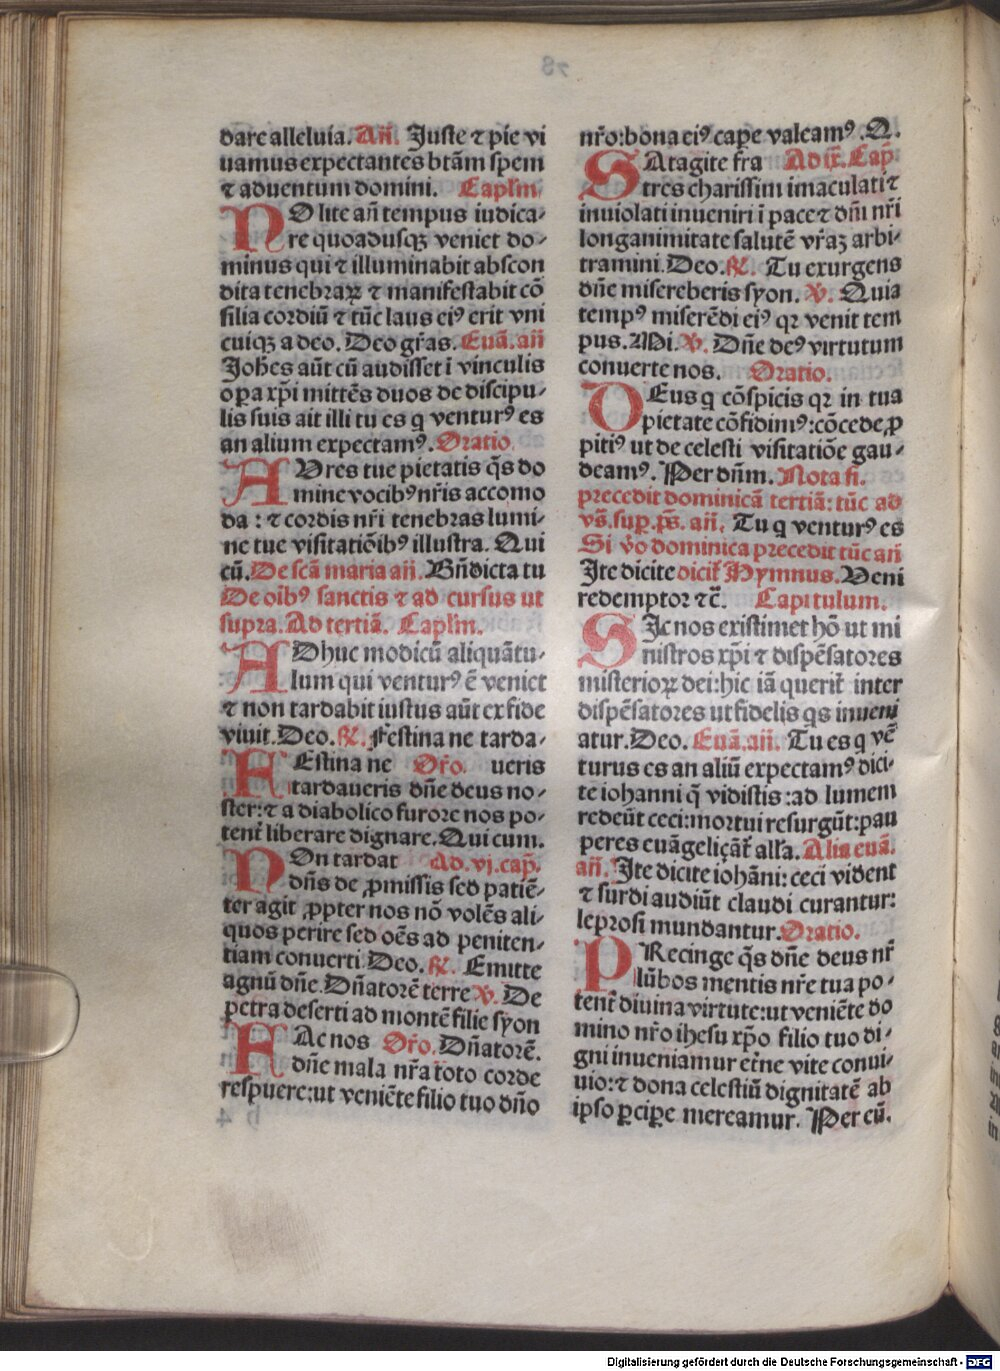 dare alleluia. Añ. Juste ⁊ pie vi
uamus expectantes btãm spem
⁊ aduentum domini. Caplm̃.
NO lite añ tempus iudica-
re quoadusqꝫ veniet do-
minus qui ⁊ illuminabit abscon
dita tenebraꝝ ⁊ manifestabit cõ
silia cordiũ ⁊ tũc laus eiꝰ erit vni
cuiqꝫ a deo. Deo gr̃as. Euã. añ
Joh̃es aũt cũ audisset ĩ vinculis
oꝑa xp̃i mittẽs duos de discipu-
lis suis ait illi tu es q venturꝰ es
an alium expectamꝰ. Oratio.
AVres tue pietatis q̃s do
mine vocibꝰ nr̃is accomo
da: ⁊ cordis nr̃i tenebras lumi-
ne tue visitatiõibꝰ illustra. Qui
cũ. De scã maria añ. Bñdicta tu
De oĩbꝰ sanctis ⁊ ad cursus ut
supra. Ad tertiã. Caplm̃.
ADhuc modicũ aliquãtu-
lum qui venturꝰ ẽ veniet
⁊ non tardabit iustus aũt ex fide
viuit. Deo. ℟. Festina ne tarda-
FEstina ne Or̃o. ueris
tardaueris dñe deus no-
ster: ⁊ a diabolico furore nos po-
tent̃ liberare dignare. Qui cum.
NOn tardat Ad. vj. cap̃.
dñs de ꝓmissis sed patiẽ-
ter agit ꝓpter nos nõ volẽs ali-
quos perire sed oẽs ad peniten-
tiam conuerti Deo. ℟. Emitte
agnũ dñe. Dñatorẽ terre ℣. De
petra deserti ad montẽ filie syon
FAc nos Or̃o. Dñatorẽ.
dñe mala nr̃a toto corde
respuere: ut veniẽte filio tuo dño
nr̃o: bona eiꝰ caꝑe valeamꝰ. Q.
SAtagite fra Ad ix̃. Cap̃.
tres charissimi imaculati ⁊
inuiolati inueniri ĩ pace ⁊ dñi nr̃i
longanimitate salutẽ vr̃aꝫ arbi-
tramini. Deo. ℟. Tu exurgens
dñe misereberis syon. ℣. Quia
tempꝰ miserẽdi eiꝰ qꝛ venit tem
pus. Mi. ℣. Dñe deꝰ virtutum
conuerte nos. Oratio.
DEus q cõspicis qꝛ in tua
pietate cõfidimꝰ: cõcede, ꝓ
pitiꝰ ut de celesti visitatiõe gau-
deamꝰ. Per dñm. Nota si.
precedit dominicã tertiã: tũc ad
vs̃. suꝑ. ps̃. añ. Tu q venturꝰ es
Si ṽo dominica precedit tũc añ
Jte dicite dicit̃ Hymnus. Veni
redemptor ⁊c̃. Capitulum.
SJc nos existimet hõ ut mi
nistros xp̃i ⁊ dispẽsatores
misterioꝝ dei: hic iã querit̃ inter
dispẽsatores ut fidelis qs inueni
atur. Deo. Euã. añ. Tu es q vẽ
turus es an aliũ expectamꝰ dici-
te iohanni q̃ vidistis: ad lumem
redeũt ceci: mortui resurgũt: pau
peres euãgeliçãt̃ alła. Alia euã.
añ. Jte dicite iohãni: ceci vident
⁊ surdi audiũt claudi curantur:
leprosi mundantur. Oratio.
PRecinge q̃s dñe deus nr̃
lũbos mentis nr̃e tua po-
tent̃ diuina virtute: ut veniẽte do
mino nr̃o ihesu xp̃o filio tuo di-
gni inueniamur et̃ne vite conui-
uio: ⁊ dona celestiũ dignitatẽ ab
ipso ꝑciꝑe mereamur. Per eũ.
Digitalisierung gefördert durch die Deutsche Forschungsgemeinschaft - DFG